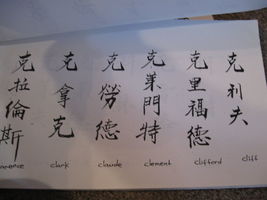 克拉倫斯
克拿克
克勞德
克萊門特
克里福德
克利夫
arence clark claude clement clifford cliff